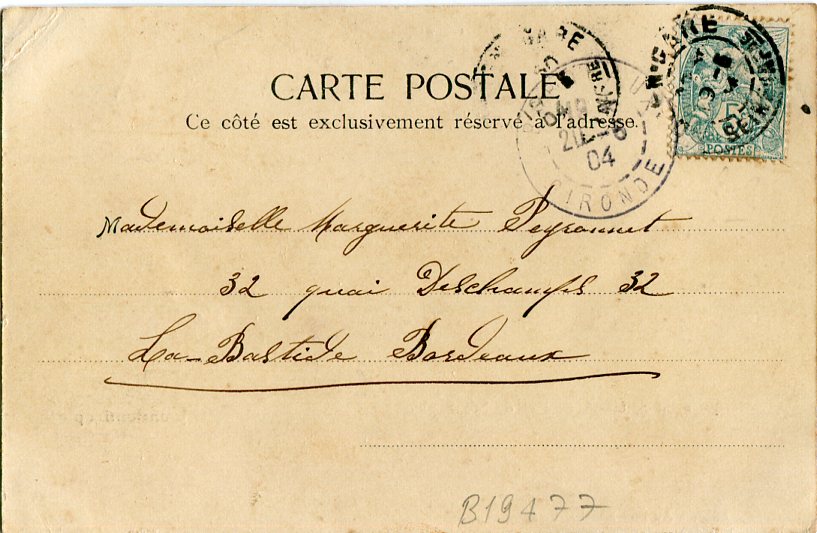 CARTE POSTALE
Ce côté est exclusivement réservé à l'adresse.
GARE
GARE
SEINE
POSTES
04
GIRONDE
Mademoiselle Marguerite Peyronnet
32 quai Deschamps 32
La-Bastide Bordeaux
B19477